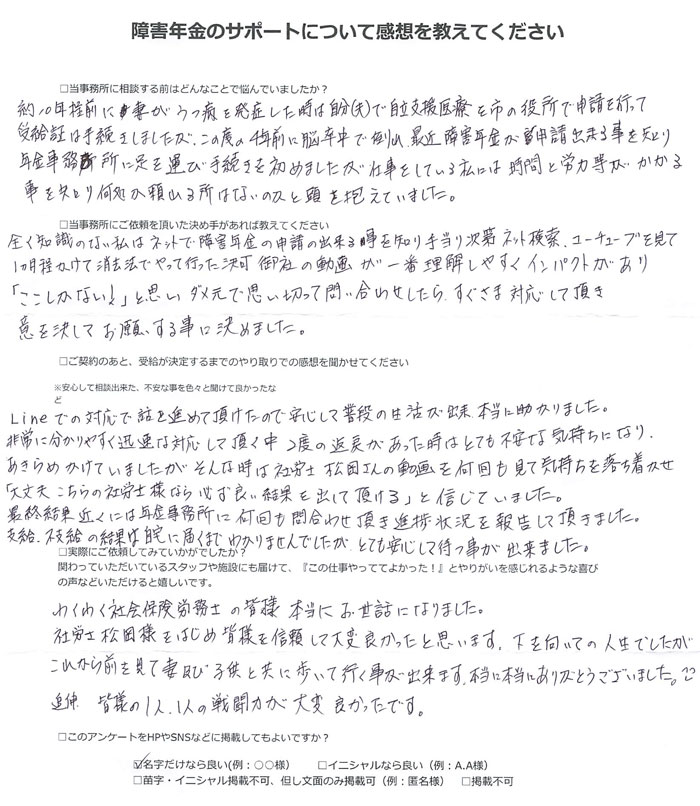 障害年金のサポートについて感想を教えてください
□当事務所に相談する前はどんなことで悩んでいましたか？
約10年程前に妻がうつ病を発症した時は自分(夫)で自立支援医療を市の役所で申請を行って
受給証は手続きしましたが、この度の4年前に脳卒中で倒れ、最近障害年金が申請出来る事を知り
年金事務所に足を運び手続きを初めましたが仕事をしている私には時間と労力等がかかる
事を知り何処か頼れる所はないのかと頭を抱えていました。
□当事務所にご依頼を頂いた決め手があれば教えてください
全く知識のない私はネットで障害年金の申請の出来る時を知り手当り次第ネット検索、ユーチューブを見て
1ヶ月程かけて消去法でやって行った決め御社の動画が一番理解しやすくインパクトがあり
「ここしかない!」と思いダメ元で思い切って問い合わせしたら、すぐさま対応して頂き
意を決してお願いする事に決めました。
□ご契約のあと、受給が決定するまでのやり取りでの感想を聞かせてください
※安心して相談出来た、不安な事を色々と聞けて良かったな
ど
Lineでの対応で話を進めて頂けたので安心して普段の生活が出来、本当に助かりました。
非常に分かりやすく迅速な対応して頂く中2度の返戻があった時はとても不安な気持ちになり、
あきらめかけていましたがそんな時は社労士松田さんの動画を何回も見て気持ちを落ち着かせ
「大丈夫こちらの社労士様なら必ず良い結果を出して頂ける」と信じていました。
最終結果近くには年金事務所に何回も問合わせ頂き進捗状況を報告して頂きました。
支給、不支給の結果は自宅に届くまでわかりませんでしたが、とても安心して待つ事が出来ました。
□実際にご依頼してみていかがでしたか？
関わっていただいているスタッフや施設にも届けて、『この仕事やっててよかった！』とやりがいを感じれるような喜び
の声などいただけると嬉しいです。
わくわく社会保険労務士の皆様本当にお世話になりました。
社労士松田様をはじめ皆様を信頼して大変良かったと思います。下を向いての人生でしたが
これから前を見て妻及び子供と共に歩いて行く事が出来ます。本当に本当にありがとうございました。
追伸 皆様の1人、1人の戦闘力が大変良かったです。
□このアンケートをHPやSNSなどに掲載してもよいですか？
☑名字だけなら良い(例：○○様） □イニシャルなら良い（例：A.A様）
□苗字・イニシャル掲載不可、但し文面のみ掲載可（例：匿名様） □掲載不可